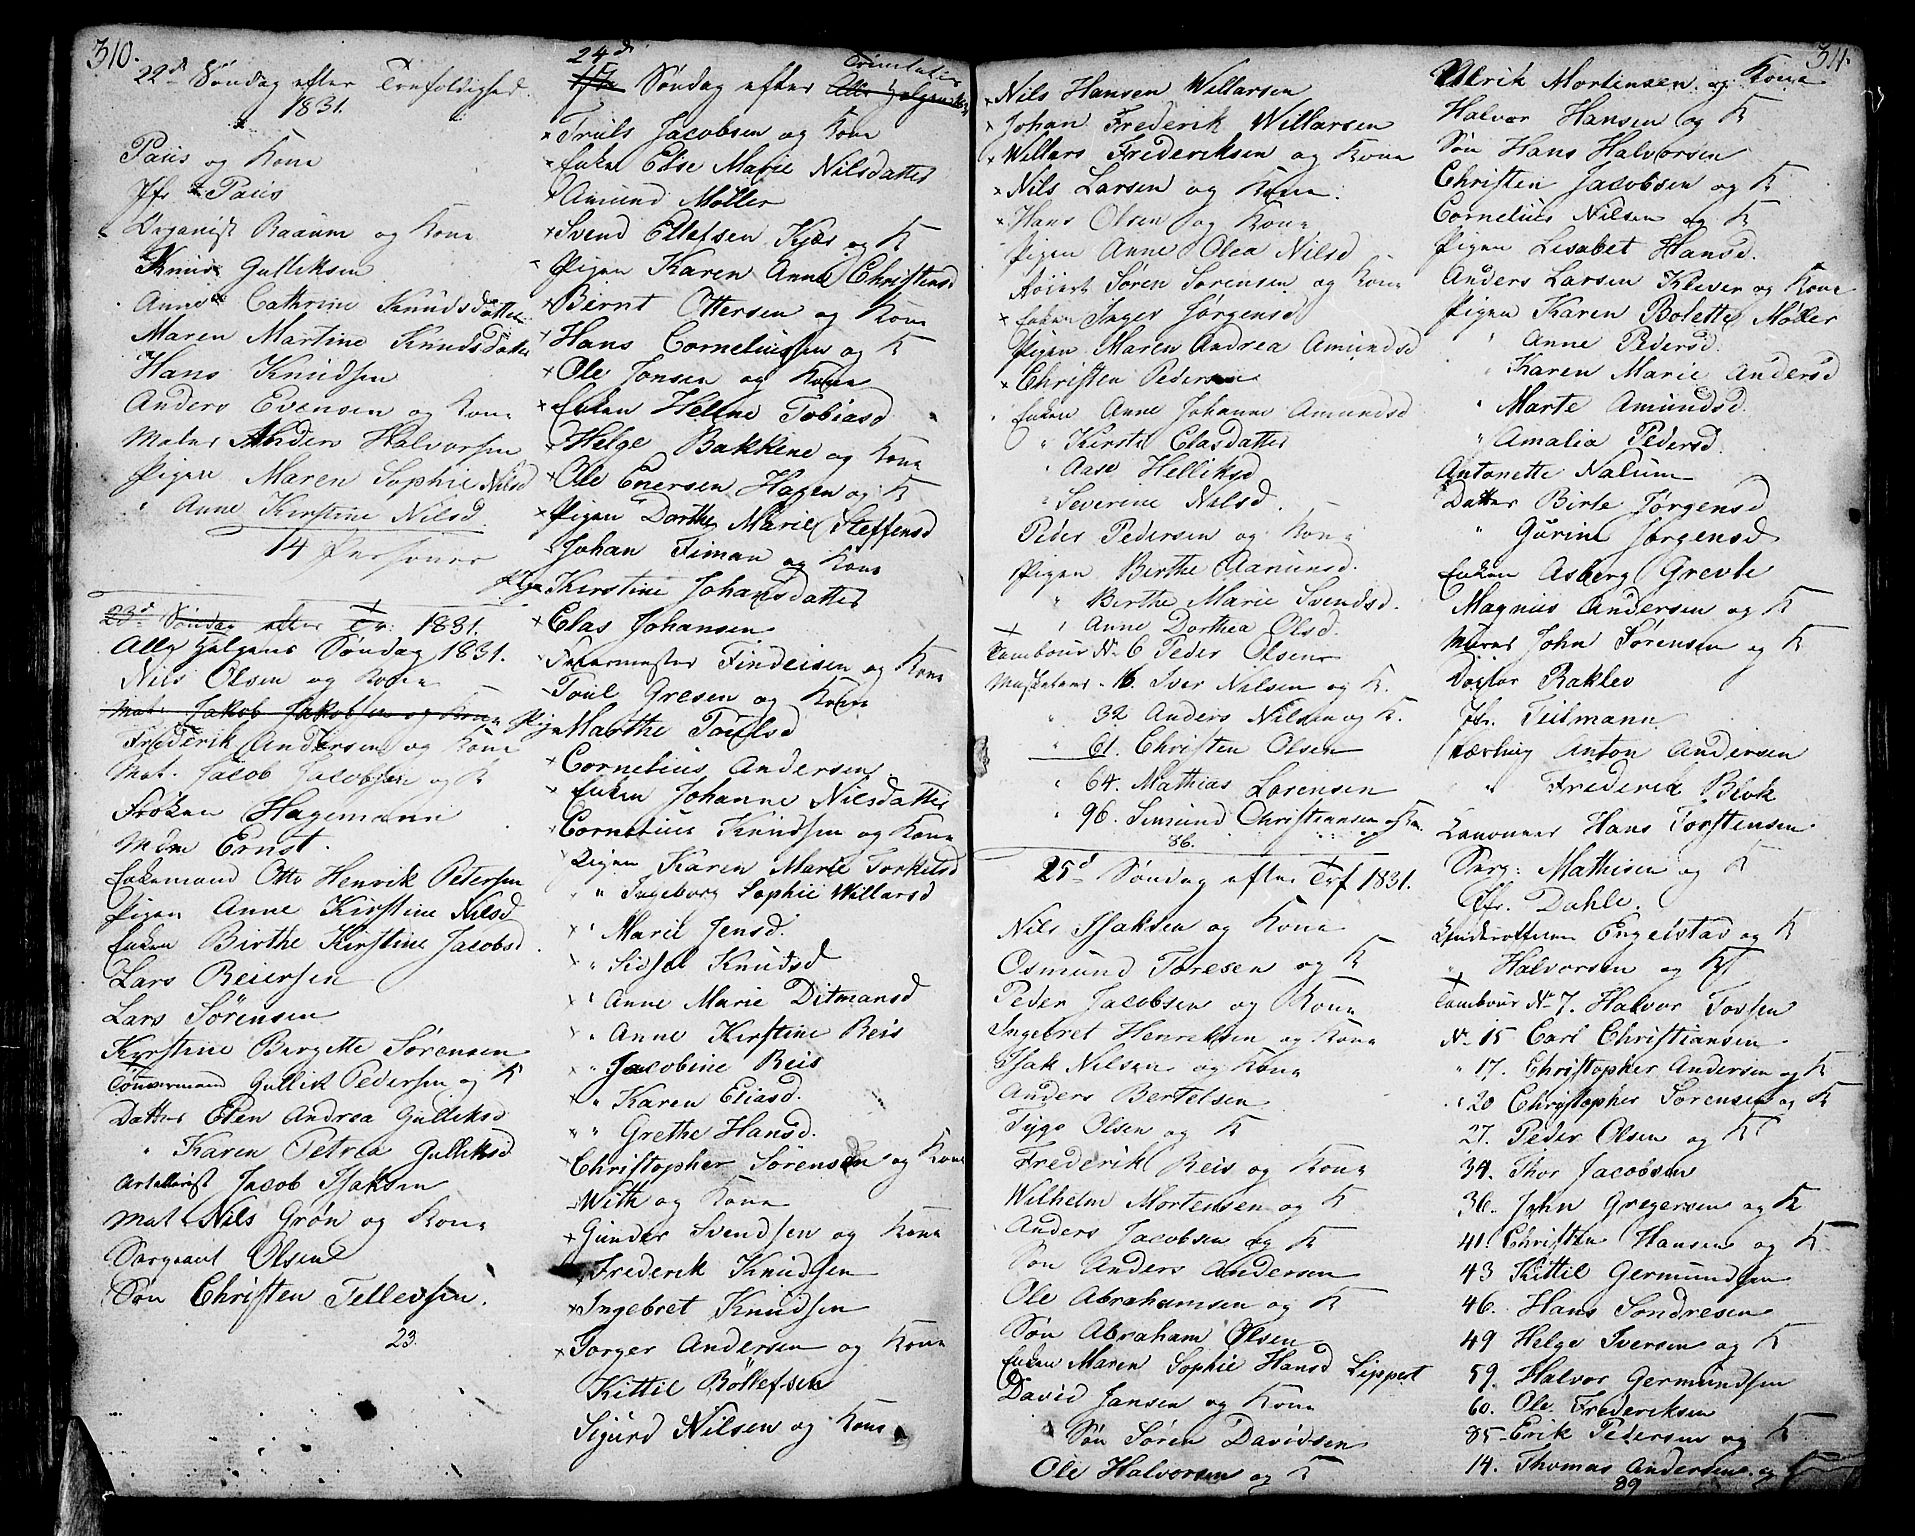 310.
22de Søndag efter Trefoldighed.
1831.
Paus og Kone
Jfr Paus
Organist Raaum og Kone
Knud Gulliksen
Anne Cathrine Knudsdatter
Maren Martine Knudsdatter
Hans Knudsen
Anders Evensen og Kone
Mater Anders Halvorsen
Pigen Maren Sophie Nilsd
" Anne Kirstine Nilsd.
14 Personer
23de Søndag efter Tr: 1831.
Alle Helgens Søndag 1831.
Nils Olsen og Kone
Mat. Jakob Jakobsen og Kone
Frederik Andersen og Kone
Mat. Jacob Jacobsen og K
Frøken Hagemann
Mdm Ernst.
Enkemand Otto Henrik Petersen
Pigen Anne Kirstine Nilsd
Enken Birthe Kirstine Jacobsd.
Lars Reiersen
Lars Sørensen
Kyrstine Birgitte Sørensen
Tømmermand Gullik Pedersen og K
Datter Elen Andrea Gulliksd
" Karen Petrea Gulliksd
Artillerist Jacob Isaksen
Mat. Nils Grøn og Kone
Sergeant Olsen
Søn Christen Tellefsen.
23.
24de
Søndag efter Alle Helgen Trinitatis
× Truls Jacobsen og Kone
× Enken Else Marie Nilsdatter
× Amund Møller
× Svend Ellefsen Kjær og K
Pigen Karen Anne Christensd
× Bernt Ottersen og Kone
× Hans Corneliussen og K
× Ole Jonsen og Kone
× Enken Helene Tobiasd
× Helge Bakkene og Kone
× Ole Enersen Hagen og K
× Pigen Dorthe Marie Steffensd
Johan Timan og Kone
Pigen Kirstine Johansdatter
× Clas Johansen
Toldermester Findeisen og Kone
Toul Gresen og Kone
Pigen Marthe Toulsd
× Cornelius Andersen
× Enken Johanne Nilsdatter
Cornelius Knudsen og Kone
Pigen Karen Marie Torkelsd
" Ingeborg Sophie Willarsd
× " Marie Jensd.
× " Sidsel Knudsd
× " Anne Marie Ditmansd
× " Anne Kirstine Reis
× " Jacobine Reis
× " Karen Eliasd.
" " Grethe Hansd.
× Christopher Sørensen og Kone
With og Kone
× Gunder Svendsen og Kone
Frederik Knudsen
× Ingebret Knudsen
× Torger Andersen og Kone
Kittil Rollefsen
Sigurd Nilsen og Kone
× Nils Hansen Willarsen
× Johan Frederik Willarsen
× Willars Frederiksen og Kone
× Nils Larsen og Kone.
× Hans Olsen og Kone
Pigen Anne Olea Nilsd
Søren Sørensen og Kone
× Enken Inger Jørgensd
Pigen Maren Andrea Amundsd
× Christen Pedersen
Enken Anne Johanne Amundsd
" Kirsti Clasdatter
" Aase Helliksd
" Severine Nilsd.
Peder Pedersen og Kone
Pigen Birthe Aamunsd.
" Birthe Marie Svendsd.
" Anne Dorthea Olsd.
Tambour No 6 Peder Olsen
Musketeer - 16. Iver Nilsen og K.
" 32 Anders Nilsen og K.
" 61. Christen Olsen
" 64. Mathias Lorensen
" 96. Simund Christiansen og Kone
86.
25de Søndag efter Tref 1831.
Nils Isaksen og Kone
Osmund Toresen og K
Peder Jacobsen og Kone
Ingebret Henriksen og Kone
Isak Nilsen og Kone
Anders Bertelsen
Tygo Olsen og K
Frederik Reis og Kone
Wilhelm Mortensen og K
Anders Jacobsen og K
Søn Anders Andersen
Ole Abrahamsen og K
Søn Abraham Olsen
Enken Maren Sophie Hansd Lippet
David Jansen og Kone
Søn Søren Davidsen
Ole Halvorsen og K
311.
Ulrik Mortensen og Kone
Halvor Hansen og K
Søn Hans Halvorsen
Christen Jacobsen og K
Cornelius Nilsen og K
Pigen Lisabet Hansd.
Anders Larsen Klever og Kone
Pigen Karen Bolette Møller
" Anne Pedersd.
" Karen Marie Andersd
" Marte Amundsd.
" Amalia Pedersd.
Antonette Nalum
Datter Birte Jørgensd
" Gurine Jørgensd
Enken Asberg Grevle
Magnus Andersen og K
Murer John Sørensen og K
Doctor Bakke
Jfr. Teilmann
Lærling Anton Andersen
" Frederik Birk
Canoneer Hans Torstensen
Serg: Mathisen og K
Jfr. Dahle.
Underofficeer Engelstad og K
" Halvorsen og K
Tambour No 7. Halvor Tovsen
No 15 Carl Christiansen
" 17. Christopher Andersen og K
" 20 Christopher Sørensen og K
27. Peder Olsen og K
34. Thor Jacobsen
36. John Gregersen og K
41. Christen Hansen og K
43 Kittil Germundsen
46. Hans Sondresen
49 Helge Iversen og K
59. Halvor Germundsen
60. Ole Frederiksen
85. Erik Pedersen og K
14. Thomas Andersen og K
89